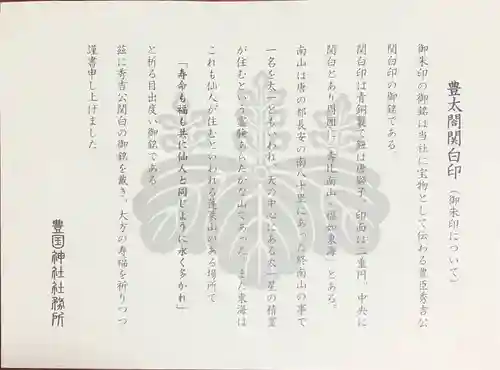 豊太閤関白印（御朱印について）
御朱印の御銘は当社に宝物として伝わる豊臣秀吉公
関白印の御銘である。
関白印は青銅製で鈕は唐獅子、印面は二重円。中央に
関白とあり周囲に「寿比南山 福如東海」とある。
南山は唐の都長安の南八十里にあった終南山の事で
一名を太一ともいわれ、天の中心にある太一星の精霊
が住むという霊験あらたかな山であった。また東海は
これも仙人が住むといわれる蓬莱山のある場所で
「寿命も福も共に仙人と同じように永く多かれ」
と祈る目出度い御銘である
茲に秀吉公関白の御銘を戴き、大方の寿福を祈りつつ
謹書申し上げました
豊国神社社務所